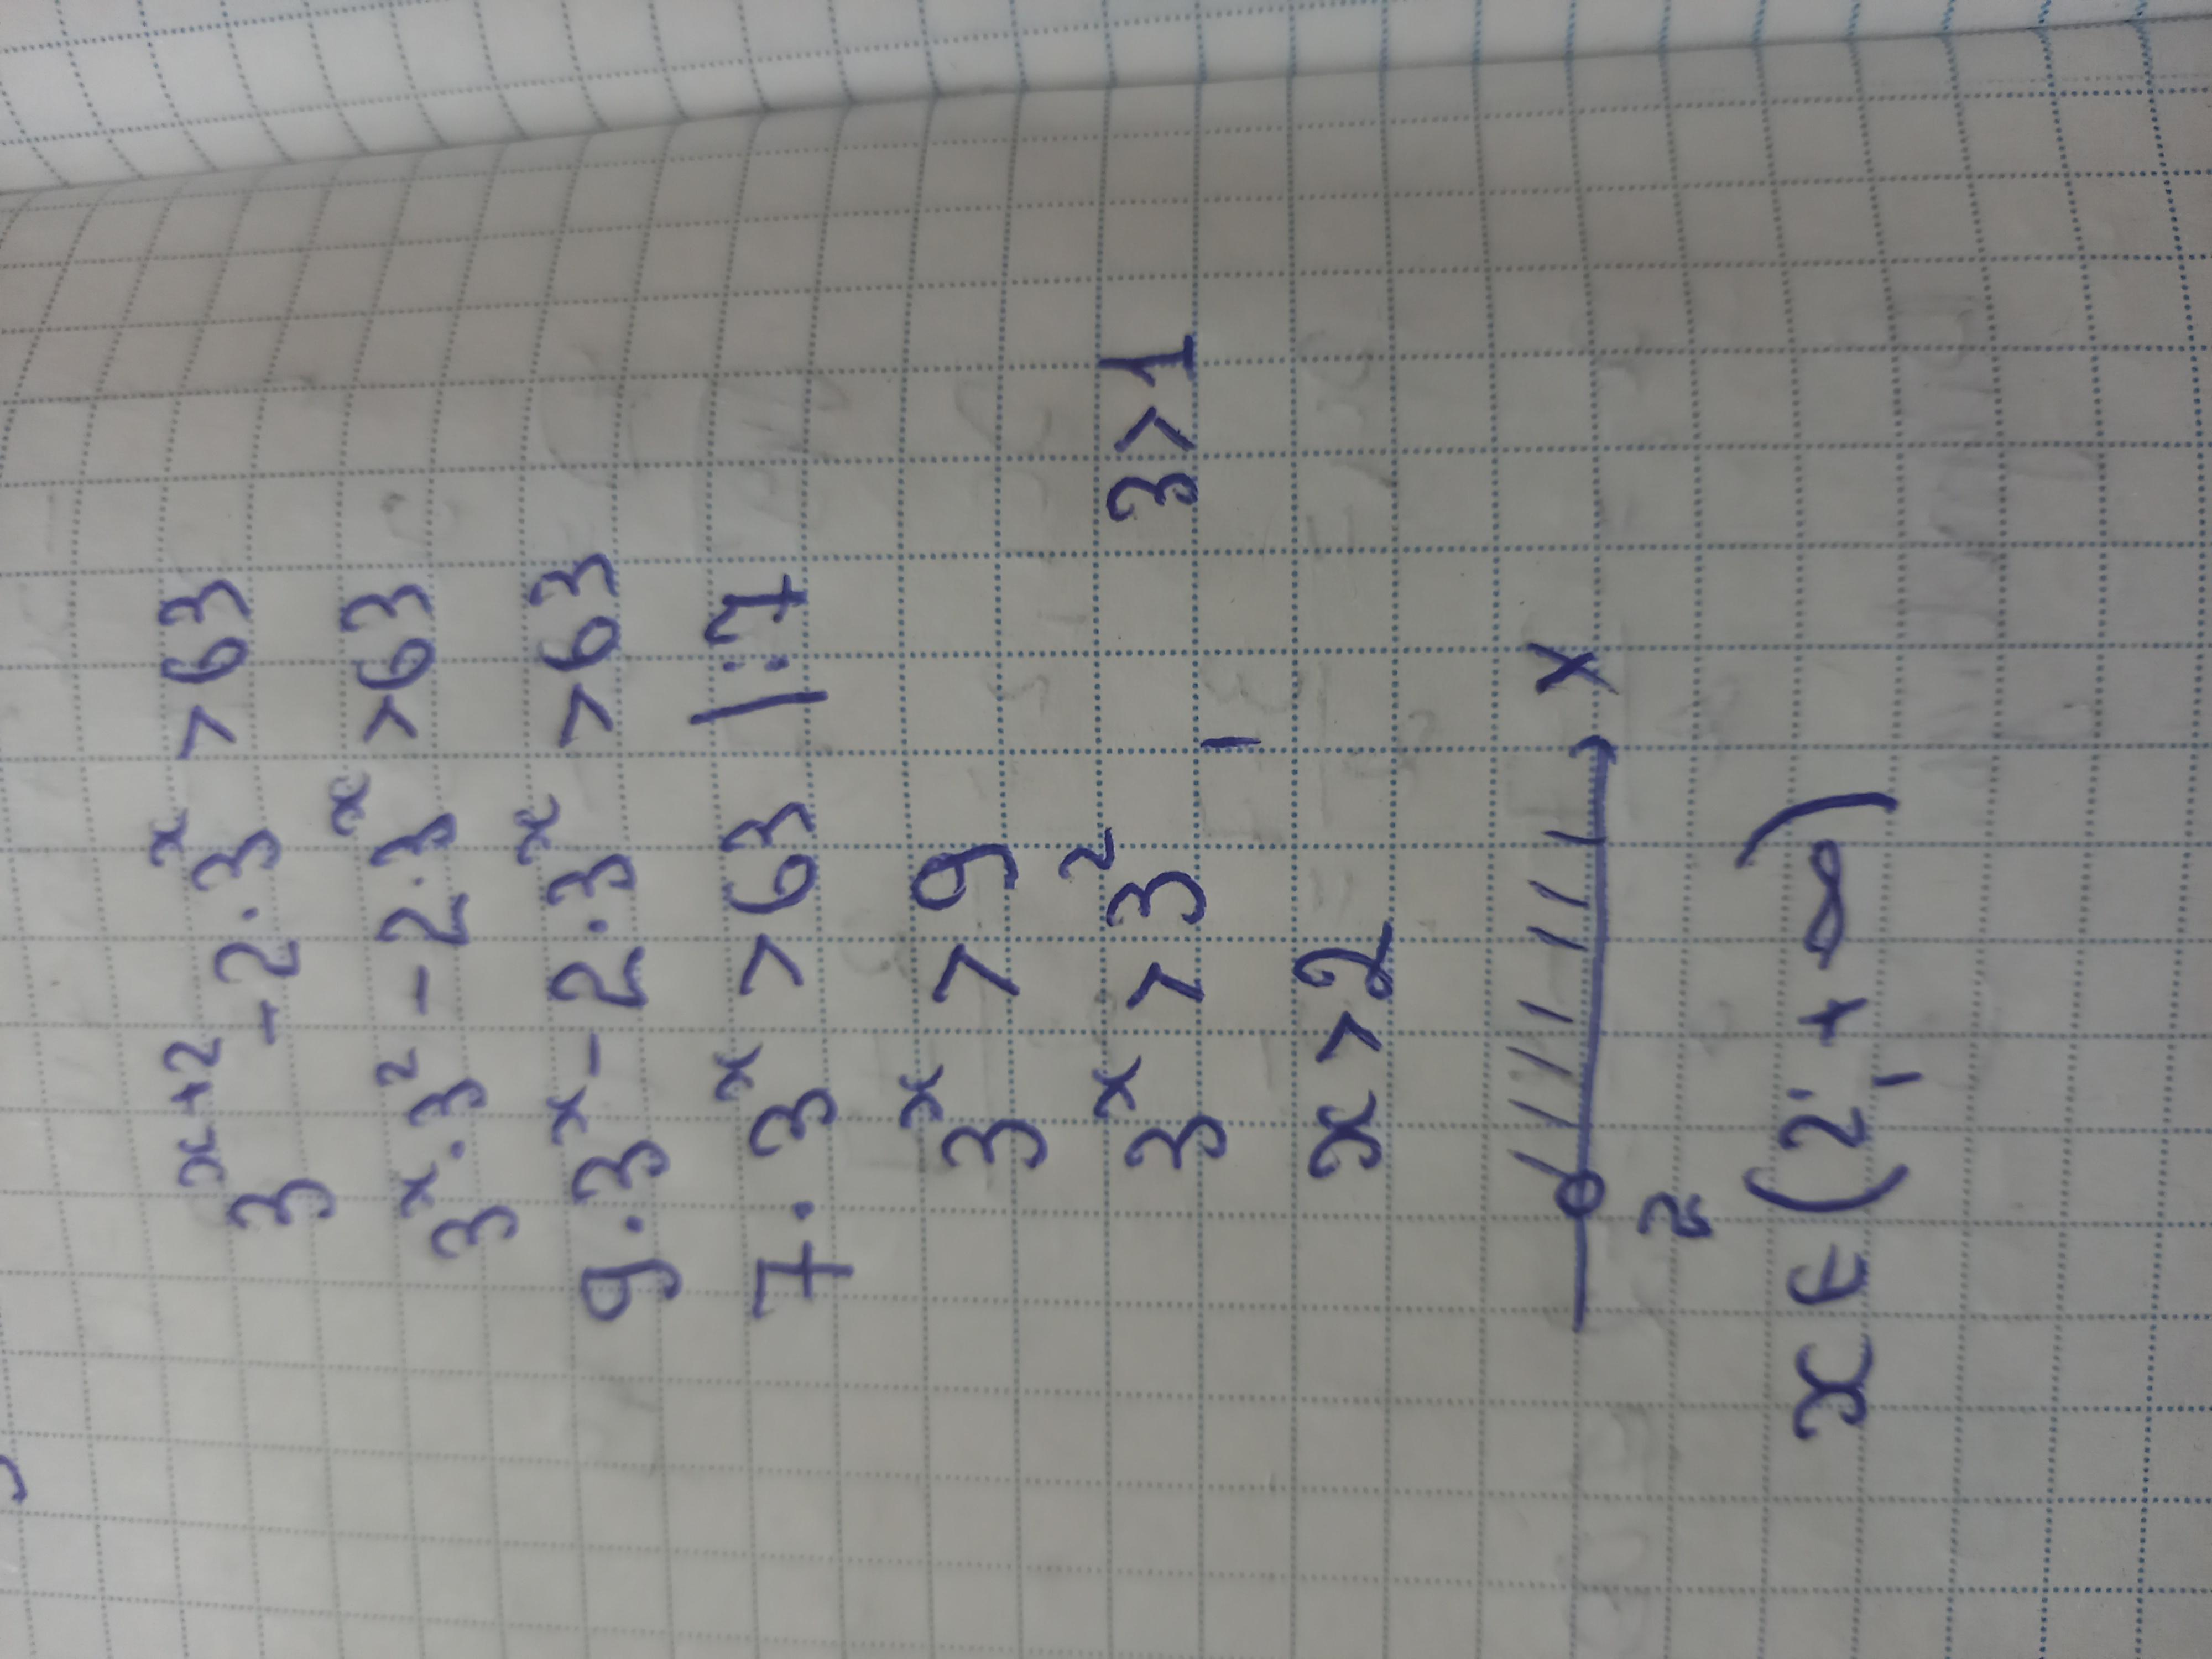 3^{x+2} - 2·3^x > 63
3^x·3^2 - 2·3^x > 63
9·3^x - 2·3^x > 63
7·3^x > 63 |:7
3^x > 9
3^x > 3^2, 3>1
x > 2
2 x
x ∈ (2; +∞)